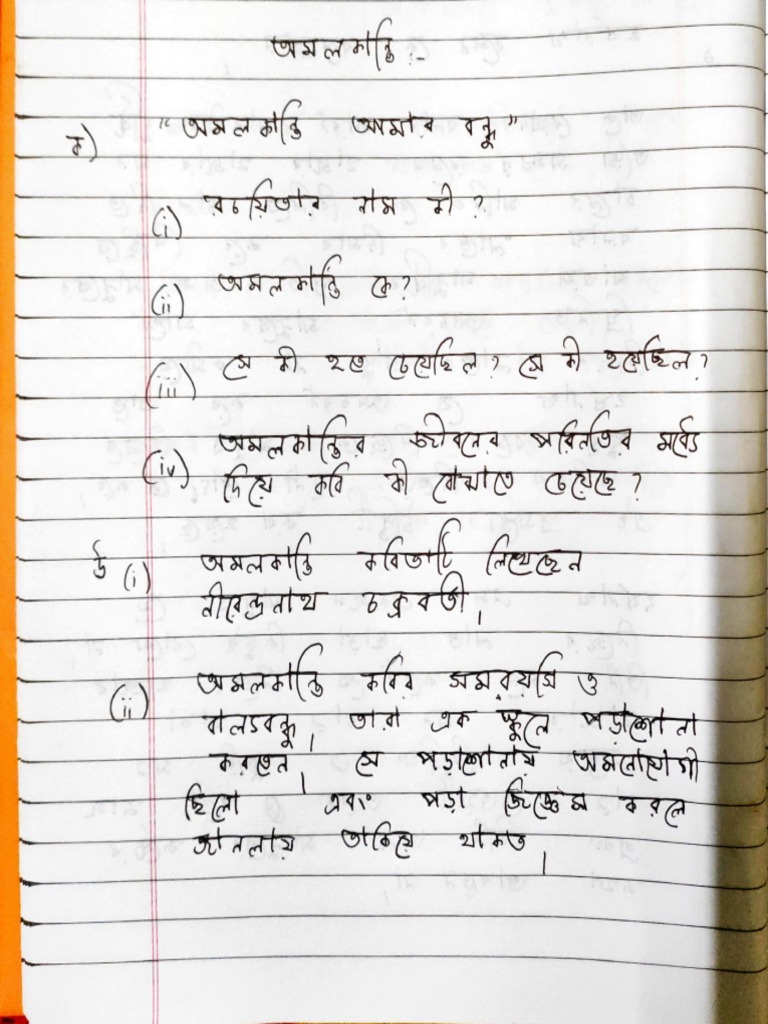 অমলকান্তি :-
ক) "অমলকান্তি আমার বন্ধু"
(i) রচয়িতার নাম কী ?
(ii) অমলকান্তি কে?
(iii) সে কী হতে চেয়েছিল? সে কী হয়েছিল?
(iv) অমলকান্তির জীবনের পরিনতির মধ্যে
দিয়ে কবি কী বোঝাতে চেয়েছে ?
উ (i) অমলকান্তি কবিতাটি লিখেছেন
নীরেন্দ্রনাথ চক্রবর্তী।
(ii) অমলকান্তি কবির সমবয়সি ও
বাল্যবন্ধু। তারা এক স্কুলে পড়াশোনা
করতেন। সে পড়াশোনায় অমনোযোগী
ছিলো এবং পড়া জিজ্ঞেস করলে
জানলায় তাকিয়ে থাকত।